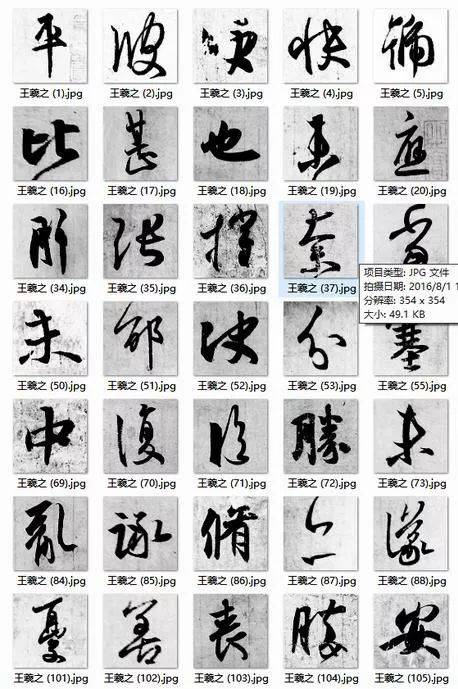 平 快
王羲之 (1).jpg 王羲之 (2).jpg 王羲之 (3).jpg 王羲之 (4).jpg 王羲之 (5).jpg
比 甚 也 未
王羲之 (16).jpg 王羲之 (17).jpg 王羲之 (18).jpg 王羲之 (19).jpg 王羲之 (20).jpg
張 奈
王羲之 (34).jpg 王羲之 (35).jpg 王羲之 (36).jpg 王羲之 (37).jpg
项目类型: JPG 文件
拍摄日期: 2016/8/1 1
分辨率: 354 x 354
大小: 49.1 KB
未 分 塞
王羲之 (50).jpg 王羲之 (51).jpg 王羲之 (52).jpg 王羲之 (53).jpg 王羲之 (55).jpg
中 復 勝 未
王羲之 (69).jpg 王羲之 (70).jpg 王羲之 (71).jpg 王羲之 (72).jpg 王羲之 (73).jpg
亂 脩
王羲之 (84).jpg 王羲之 (85).jpg 王羲之 (86).jpg 王羲之 (87).jpg 王羲之 (88).jpg
憂 善 喪 勝 安
王羲之 (101).jpg 王羲之 (102).jpg 王羲之 (103).jpg 王羲之 (104).jpg 王羲之 (105).jpg